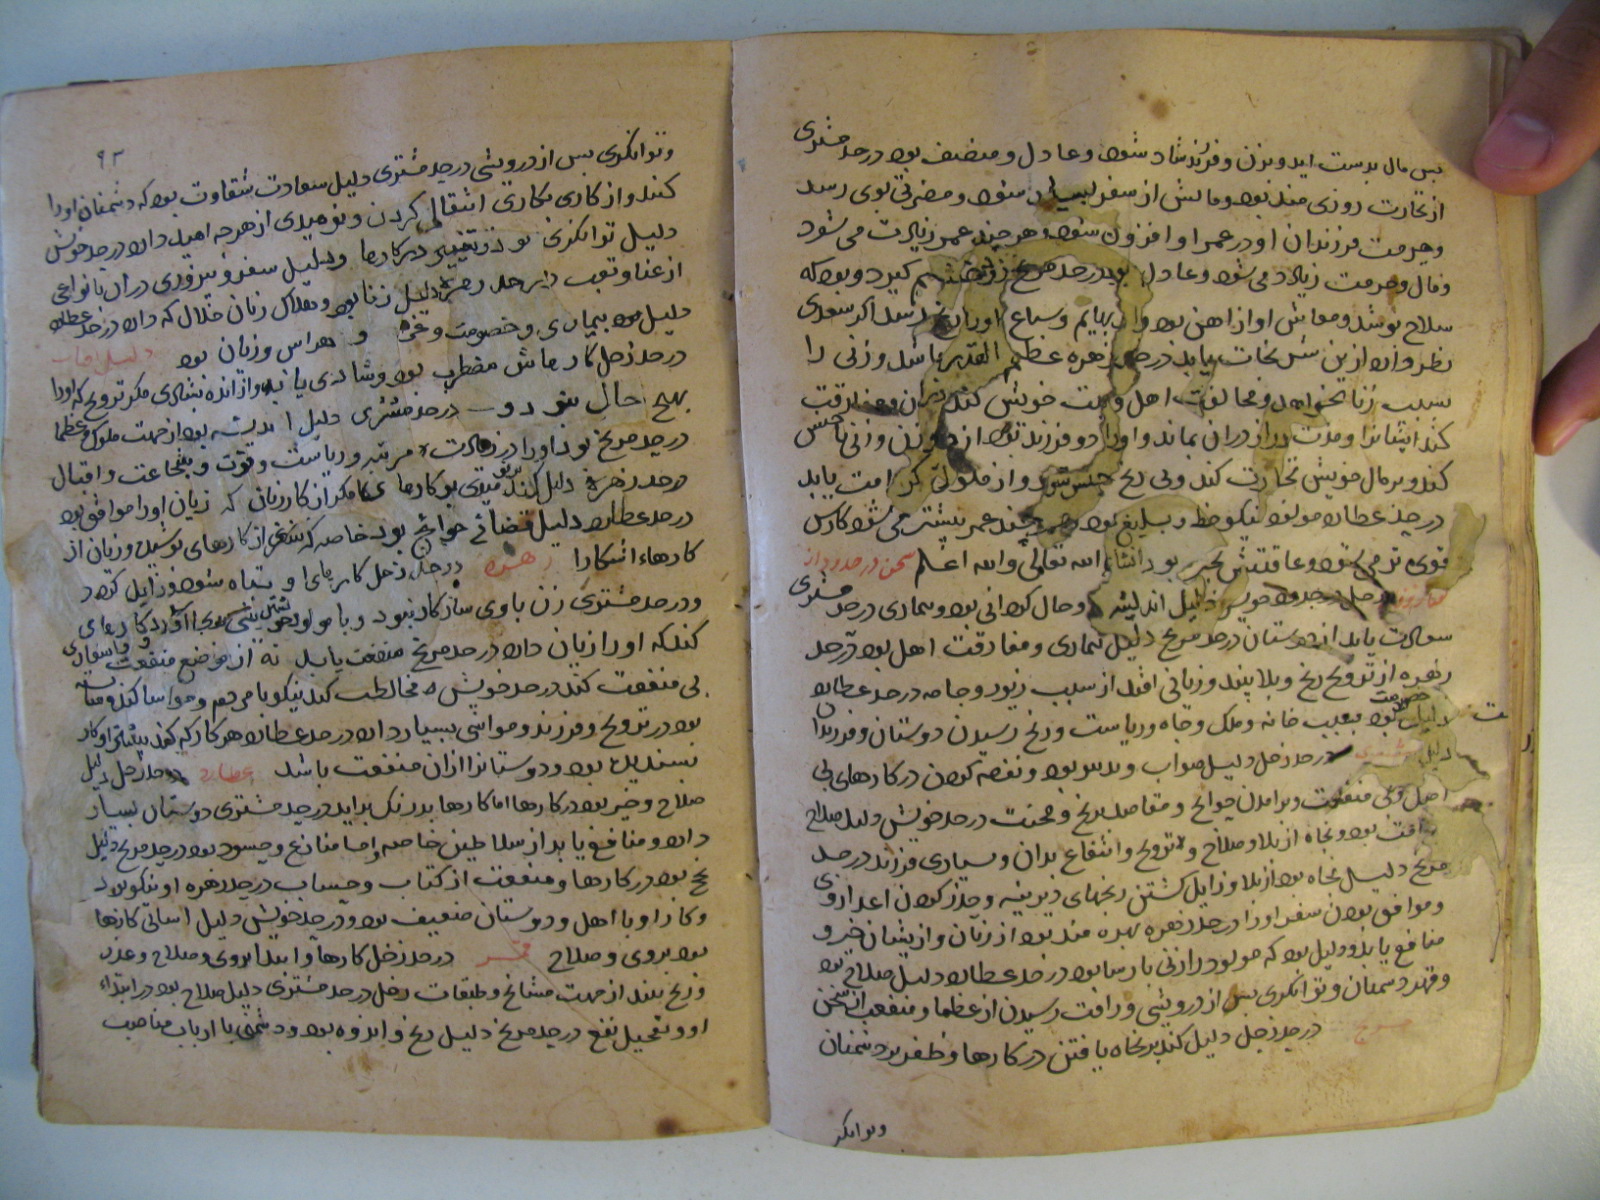 پس مال بدست آید و بزن و فرزند شاد شود و عادل و منصف بود در حد مشتری
از تجارت روزی مند بود و مالش از سفر بسیار شود و مضرتی بوی رسد
و حرمت فرزندان او در عمر او افزون شود و هر چند عمر زیادت می شود
و مال و حرمت زیاد می شود و عادل بود در حد مریخ کیرد و بود که
سلاح پوشد و معاش او از اهن بود و بهایم و سباع اکر سعدی
نظر دارد ازین نجات یابد در حد زهره عظیم القدر باشد و زنی را
بسبب زنا بخواهد و مخالفت اهل و بیت خویش کند
کند ایشانرا و مدت دراز دران بماند و او را دو فرزند بود از دو زن
کند و بر مال خویش تجارت کند وبی رنج و از ملوک کرامت یابد
در حد عطارد مولود نیکو خط و بلیغ بود و هر چند عمر بیشتر می شود کارش
قوی تر می شود و عاقبتش بخیر بود انشاء الله تعالی والله اعلم سخن در حدود
زحل در حد خویش دلیل اندیشه و حال کرانی بود و بیماری در حد مشتری
سعادت یابد از دوستان در حد مریخ دلیل بیماری و مفارقت اهل بود در حد
زهره از تزویج رنج و بلا بیند و زیانی افتد از سبب زیور و جامه در حد عطارد
دلیل خصومت بود بسبب خانه و ملک و جاه و ریاست و رنج رسیدن دوستان و فرزندان
دلیل مشتری در حد زحل دلیل صواب و تدبیر بود و نفقه کردن در کارهای بی
اصل و بی منفعت و برامدن حوایج و مقاصد برنج و محنت در حد خویش دلیل صلاح
یافتن بود و نجاه از بلا و صلاح و تزویج و انتفاع بدان و بسیاری فرزند در حد
مریخ دلیل نجاه بود از بلا و زایل کشتن رنجهای دیرینه و حذر کردن اعدا ازوی
و موافق بودن سفر او را در حد زهره بهره مند بود از زنان و ازیشان خیر و
منافع یابد و دلیل بود که مولود را زنی پارسا بود در حد عطارد دلیل صلاح بود
و قهر دشمنان و توانکری پس از درویشی و رافت رسیدن از عظما و منفعت از سخن
مریخ در حد زحل دلیل کند بر نجاه یافتن در کارها و ظفر بر دشمنان
و توانکر
۹۲
و توانکری پس از درویشی در حد مشتری دلیل سعادت شقاوت بود که دشمنان او را
کنند و از کاری بکاری انتقال کردن و نومیدی از هر چه امید دارد در حد خویش
دلیل توانکری بود و تغییر در کارها و دلیل سفر و پیروزی دران بانواعی
از عنا و تعب در حد زهره دلیل زنا بود و هلاک زنان حلال که دارد در حد عطارد
دلیل بود بیماری و خصومت و غم و هراس و زیان بود دلیل افتاب
در حد زحل کارهاش مضطرب بود و شادی یابد و از اندوه بشادی مکر تزویج که او را
بهیچ حال نبود و در حد مشتری دلیل اندیشه بود از جهت ملوک و عظما
در حد مریخ بود او را در زیادت مرتبه و ریاست و قوت و شجاعت و اقبال
در حد زهره دلیل کند بر نومیدی بر کارها مکر از کار زنان که زیان او را موافق بود
در حد عطارد دلیل قضای حوایج بود خاصه که از کارهای پوشیده و زیان از
کارهاء اشکارا زهره در حد زحل کارهای او تباه شود و زایل کردد
و در حد مشتری زن با وی سازکار نبود و با مولود کارهای
کند که او را زیان دارد در حد مریخ منفعت یابد نه از موضع منفعت
بی منفعت کند در حد خویش مخالطت کند نیکو با مردم و مواسا کند
بود در تزویج و فرزند و مواشی بسیار دارد در حد عطارد هر کار که کند
پسندیده بود و دوستانرا ازان منفعت باشد عطارد در حد زحل دلیل
صلاح و خیر بود در کارها اما کارها بدرنک براید در حد مشتری دوستان بسیار
دارد و منافع یابد از سلاطین خاصه و منازع و حسود بود در حد مریخ دلیل
رنج بود در کارها و منفعت از کتاب و حساب در حد زهره او نیکو بود
و کار او با اهل و دوستان ضعیف بود و در حد خویش دلیل اسانی کارها
بود بروی و صلاح قمر در حد زحل کارها و ابتدا بروی و صلاح و عدد
و رنج بیند از جهت مشایخ و طبقات زحل در حد مشتری دلیل صلاح بود در ابتداء
او و تعجیل نفع در حد مریخ دلیل رنج و اندوه بود و دشمنی با ارباب مناصب